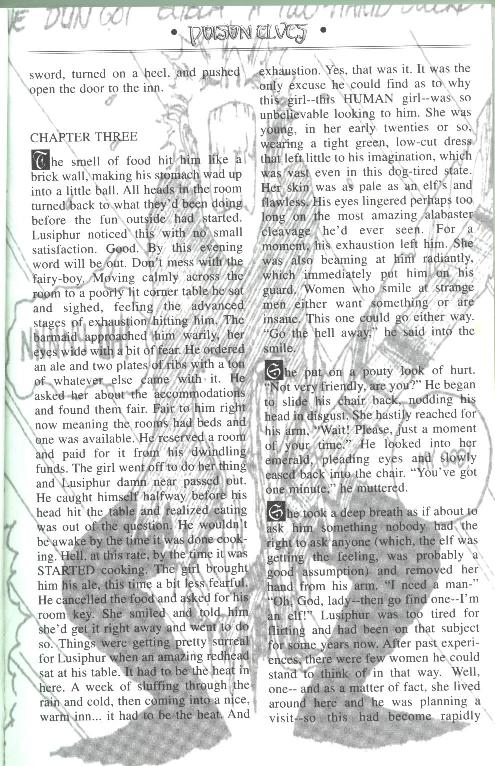 E DUN GOT
• POISON ELVES •
sword, turned on a heel, and pushed
open the door to the inn.
CHAPTER THREE
The smell of food hit him like a
brick wall, making his stomach wad up
into a little ball. All heads in the room
turned back to what they'd been doing
before the fun outside had started.
Lusiphur noticed this with no small
satisfaction. Good. By this evening
word will be out. Don't mess with the
fairy-boy. Moving calmly across the
room to a poorly lit corner table he sat
and sighed, feeling the advanced
stages of exhaustion hitting him. The
barmaid approached him warily, her
eyes wide with a bit of fear. He ordered
an ale and two plates of ribs with a ton
of whatever else came with it. He
asked her about the accommodations
and found them fair. Fair to him right
now meaning the rooms had beds and
one was available. He reserved a room
and paid for it from his dwindling
funds. The girl went off to do her thing
and Lusiphur damn near passed out.
He caught himself halfway before his
head hit the table and realized eating
was out of the question. He wouldn't
be awake by the time it was done cook-
ing. Hell, at this rate, by the time it was
STARTED cooking. The girl brought
him his ale, this time a bit less fearful.
He cancelled the food and asked for his
room key. She smiled and told him
she'd get it right away and went to do
so. Things were getting pretty surreal
for Lusiphur when an amazing redhead
sat at his table. It had to be the heat in
here. A week of sluffing through the
rain and cold, then coming into a nice,
warm inn... it had to be the heat. And
exhaustion. Yes, that was it. It was the
only excuse he could find as to why
this girl--this HUMAN girl--was so
unbelievable looking to him. She was
young, in her early twenties or so,
wearing a tight green, low-cut dress
that left little to his imagination, which
was vast even in this dog-tired state.
Her skin was as pale as an elf's and
flawless. His eyes lingered perhaps too
long on the most amazing alabaster
cleavage he'd ever seen. For a
moment, his exhaustion left him. She
was also beaming at him radiantly,
which immediately put him on his
guard. Women who smile at strange
men either want something or are
insane. This one could go either way.
"Go the hell away," he said into the
smile.
She put on a pouty look of hurt.
"Not very friendly, are you?" He began
to slide his chair back, nodding his
head in disgust. She hastily reached for
his arm, "Wait! Please, just a moment
of your time." He looked into her
emerald, pleading eyes and slowly
eased back into the chair. "You've got
one minute," he muttered.
She took a deep breath as if about to
ask him something nobody had the
right to ask anyone (which, the elf was
getting the feeling, was probably a
good assumption) and removed her
hand from his arm. "I need a man-"
"Oh, God, lady--then go find one--I'm
an elf!" Lusiphur was too tired for
flirting and had been on that subject
for some years now. After past experi-
ences, there were few women he could
stand to think of in that way. Well,
one-- and as a matter of fact, she lived
around here and he was planning a
visit--so this had become rapidly